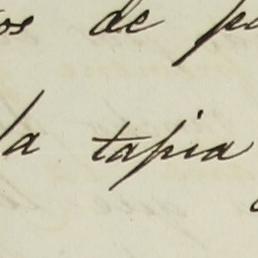 de
la tapia